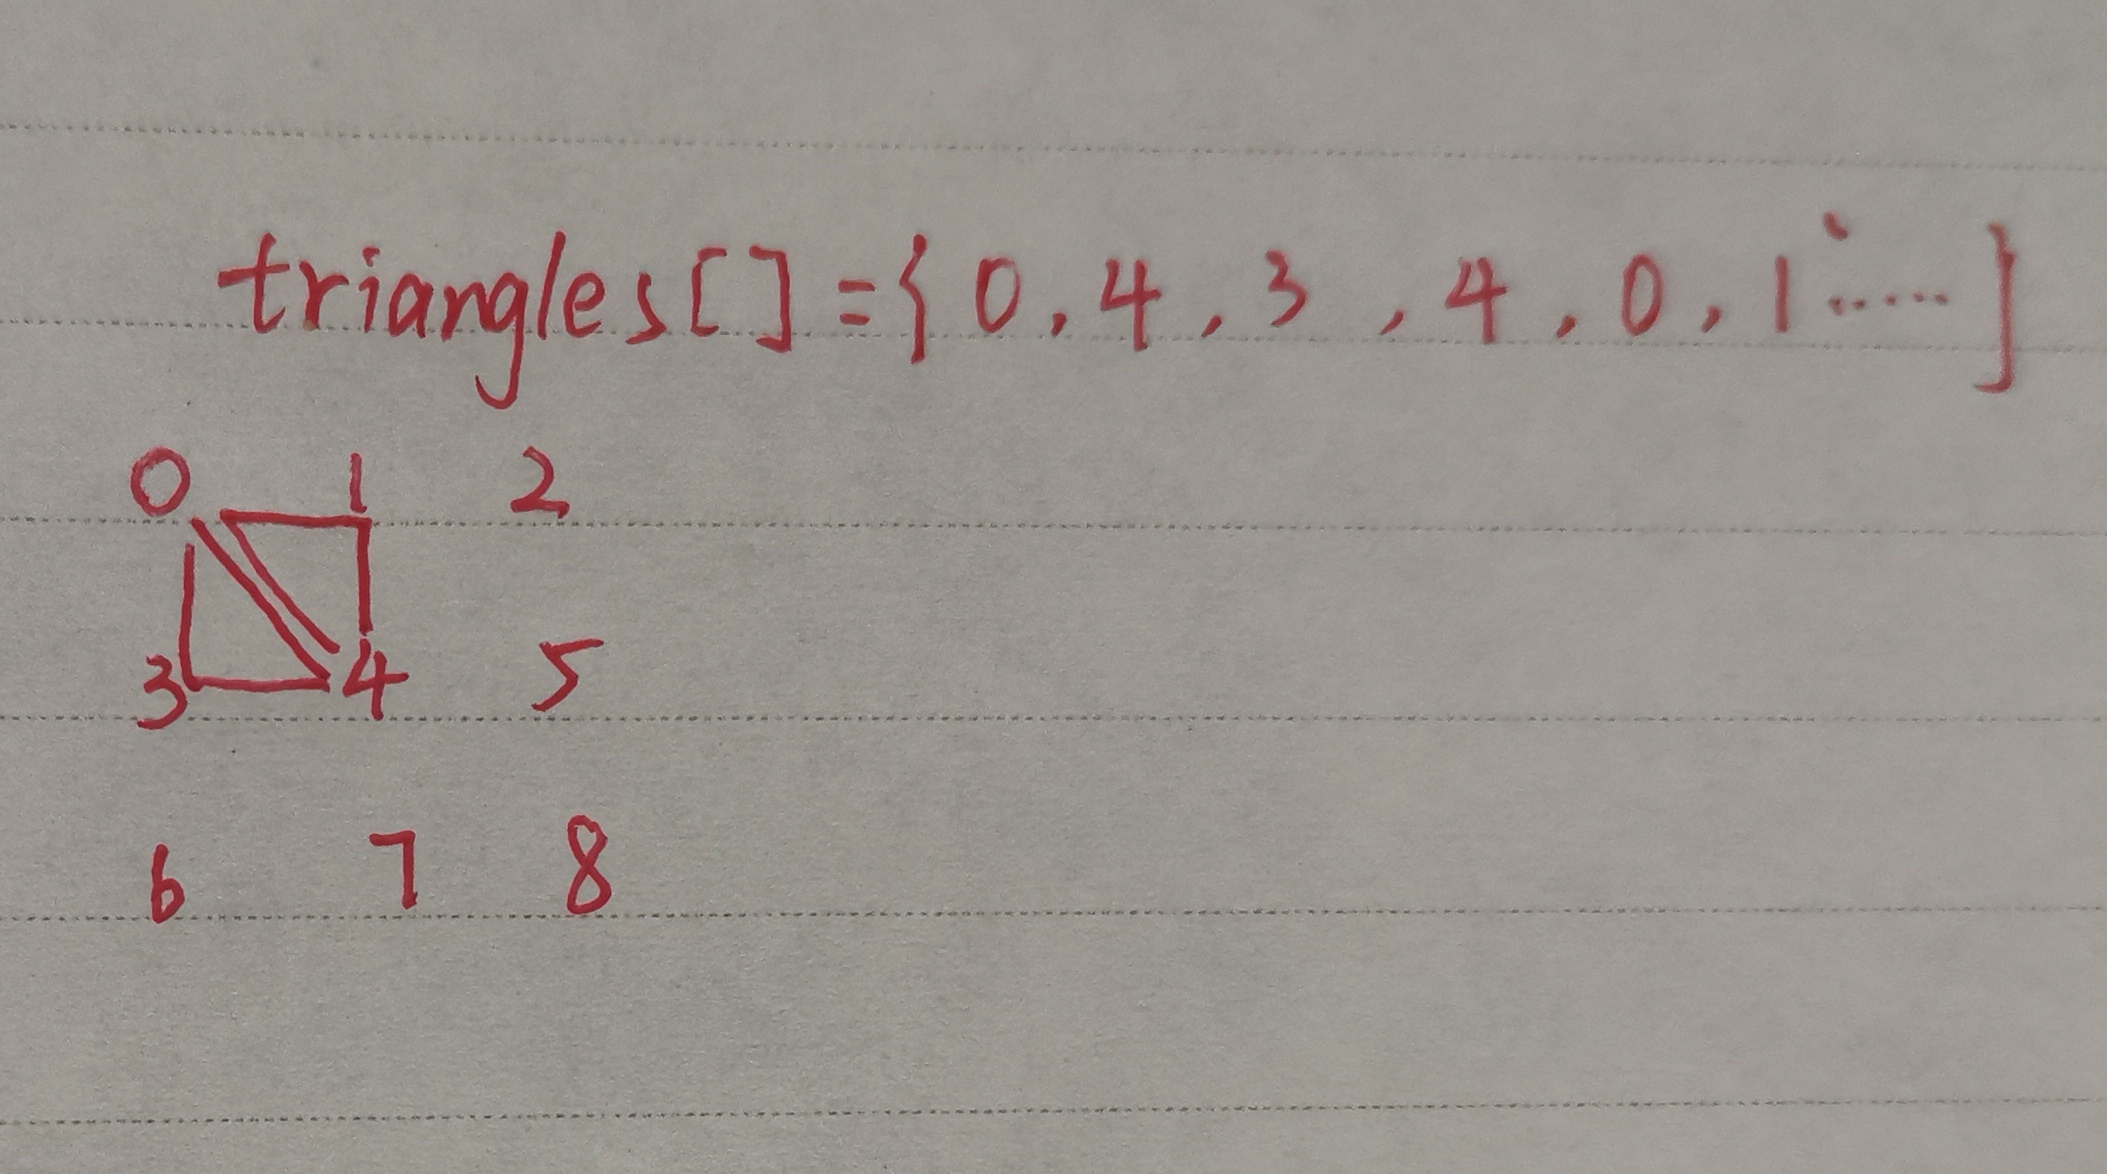 triangles[]={0,4,3,4,0,1......}
0 1 2
3 4 5
6 7 8